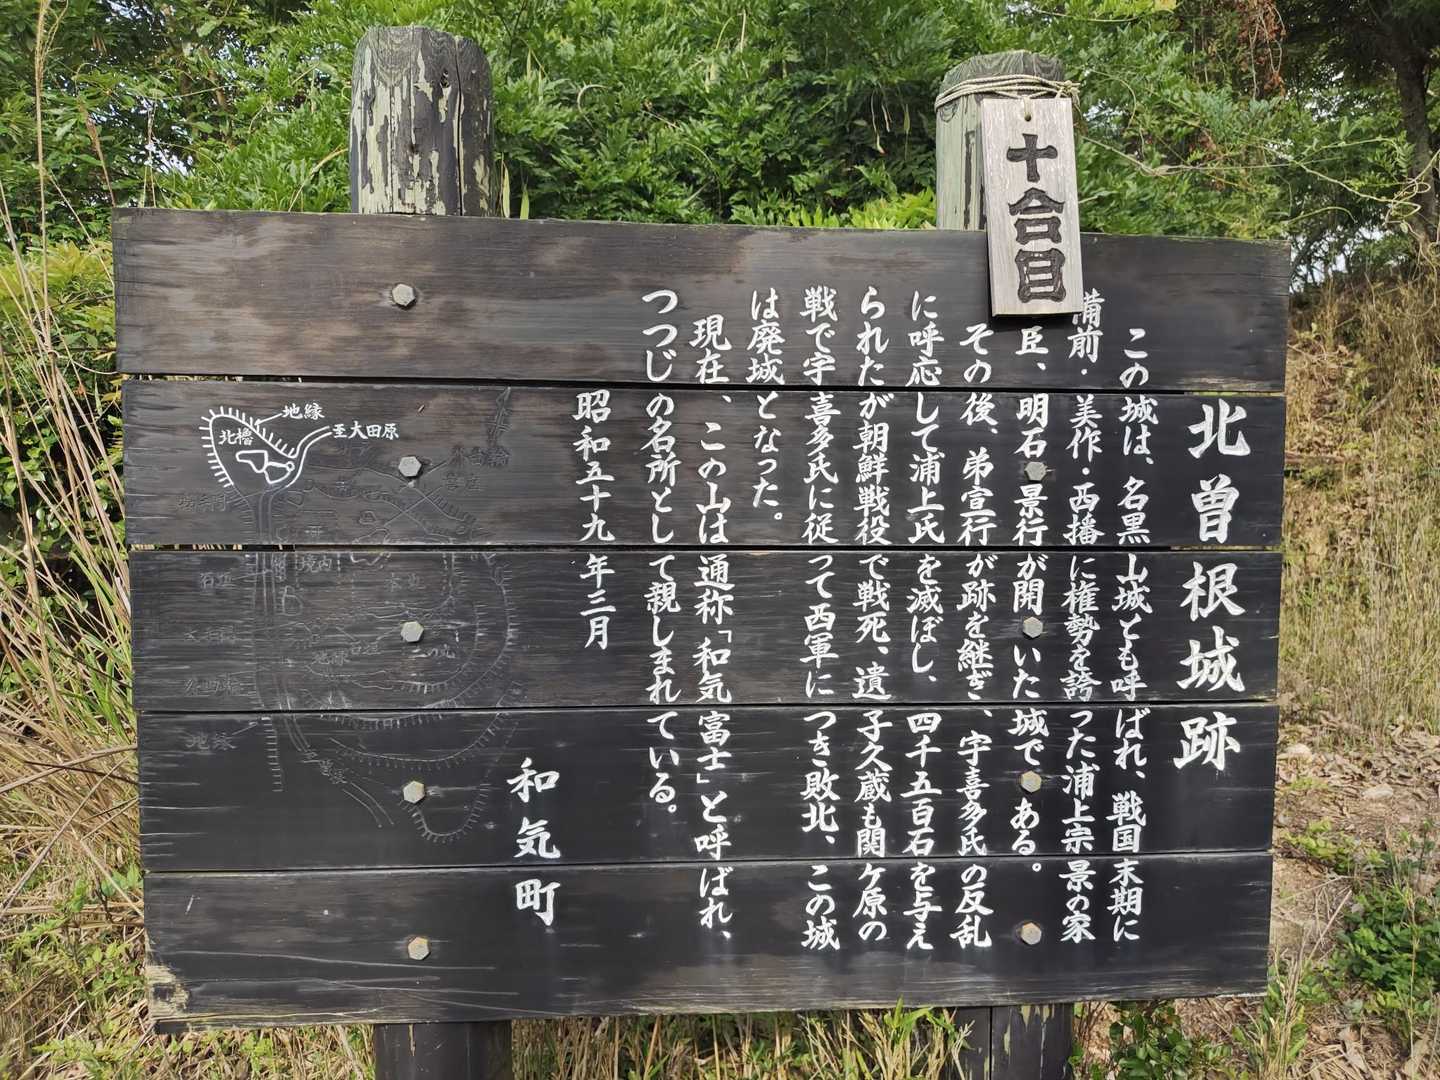 十合目
北曽根城跡
この城は、名黒山城とも呼ばれ、戦国末期に
備前・美作・西播に権勢を誇った浦上宗景の家
臣、明石景行が開いた城である。
その後、弟宣行が跡を継ぎ、宇喜多氏の反乱
に呼応して浦上氏を滅ぼし、四千五百石を与え
られたが朝鮮戦役で戦死、遺子久蔵も関ケ原の
戦で宇喜多氏に従って西軍につき敗北、この城
は廃城となった。
現在、この山は通称「和気富士」と呼ばれ、
つつじの名所として親しまれている。
昭和五十九年三月
和気町
地縁
至大田原
北櫓
境内
石垣
二の丸
地縁
地縁